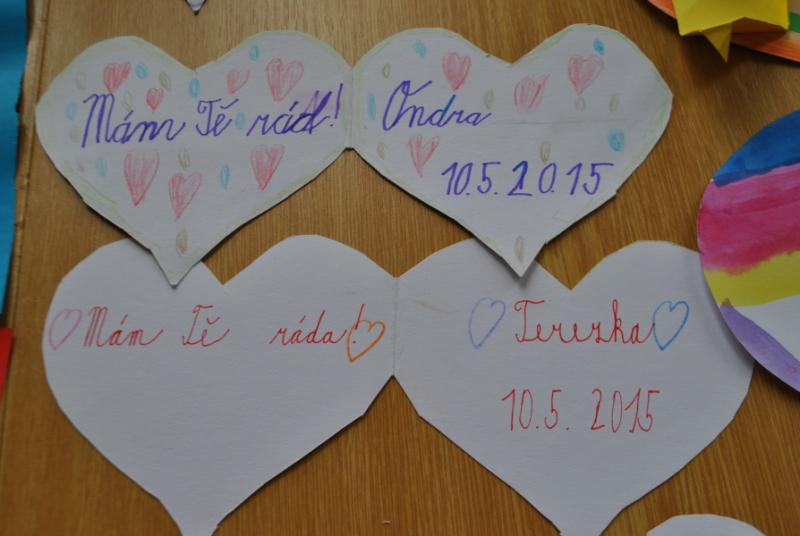 Mám Tě rád!
Ondra
10.5.2015
Mám Tě ráda!
Terezka
10.5.2015